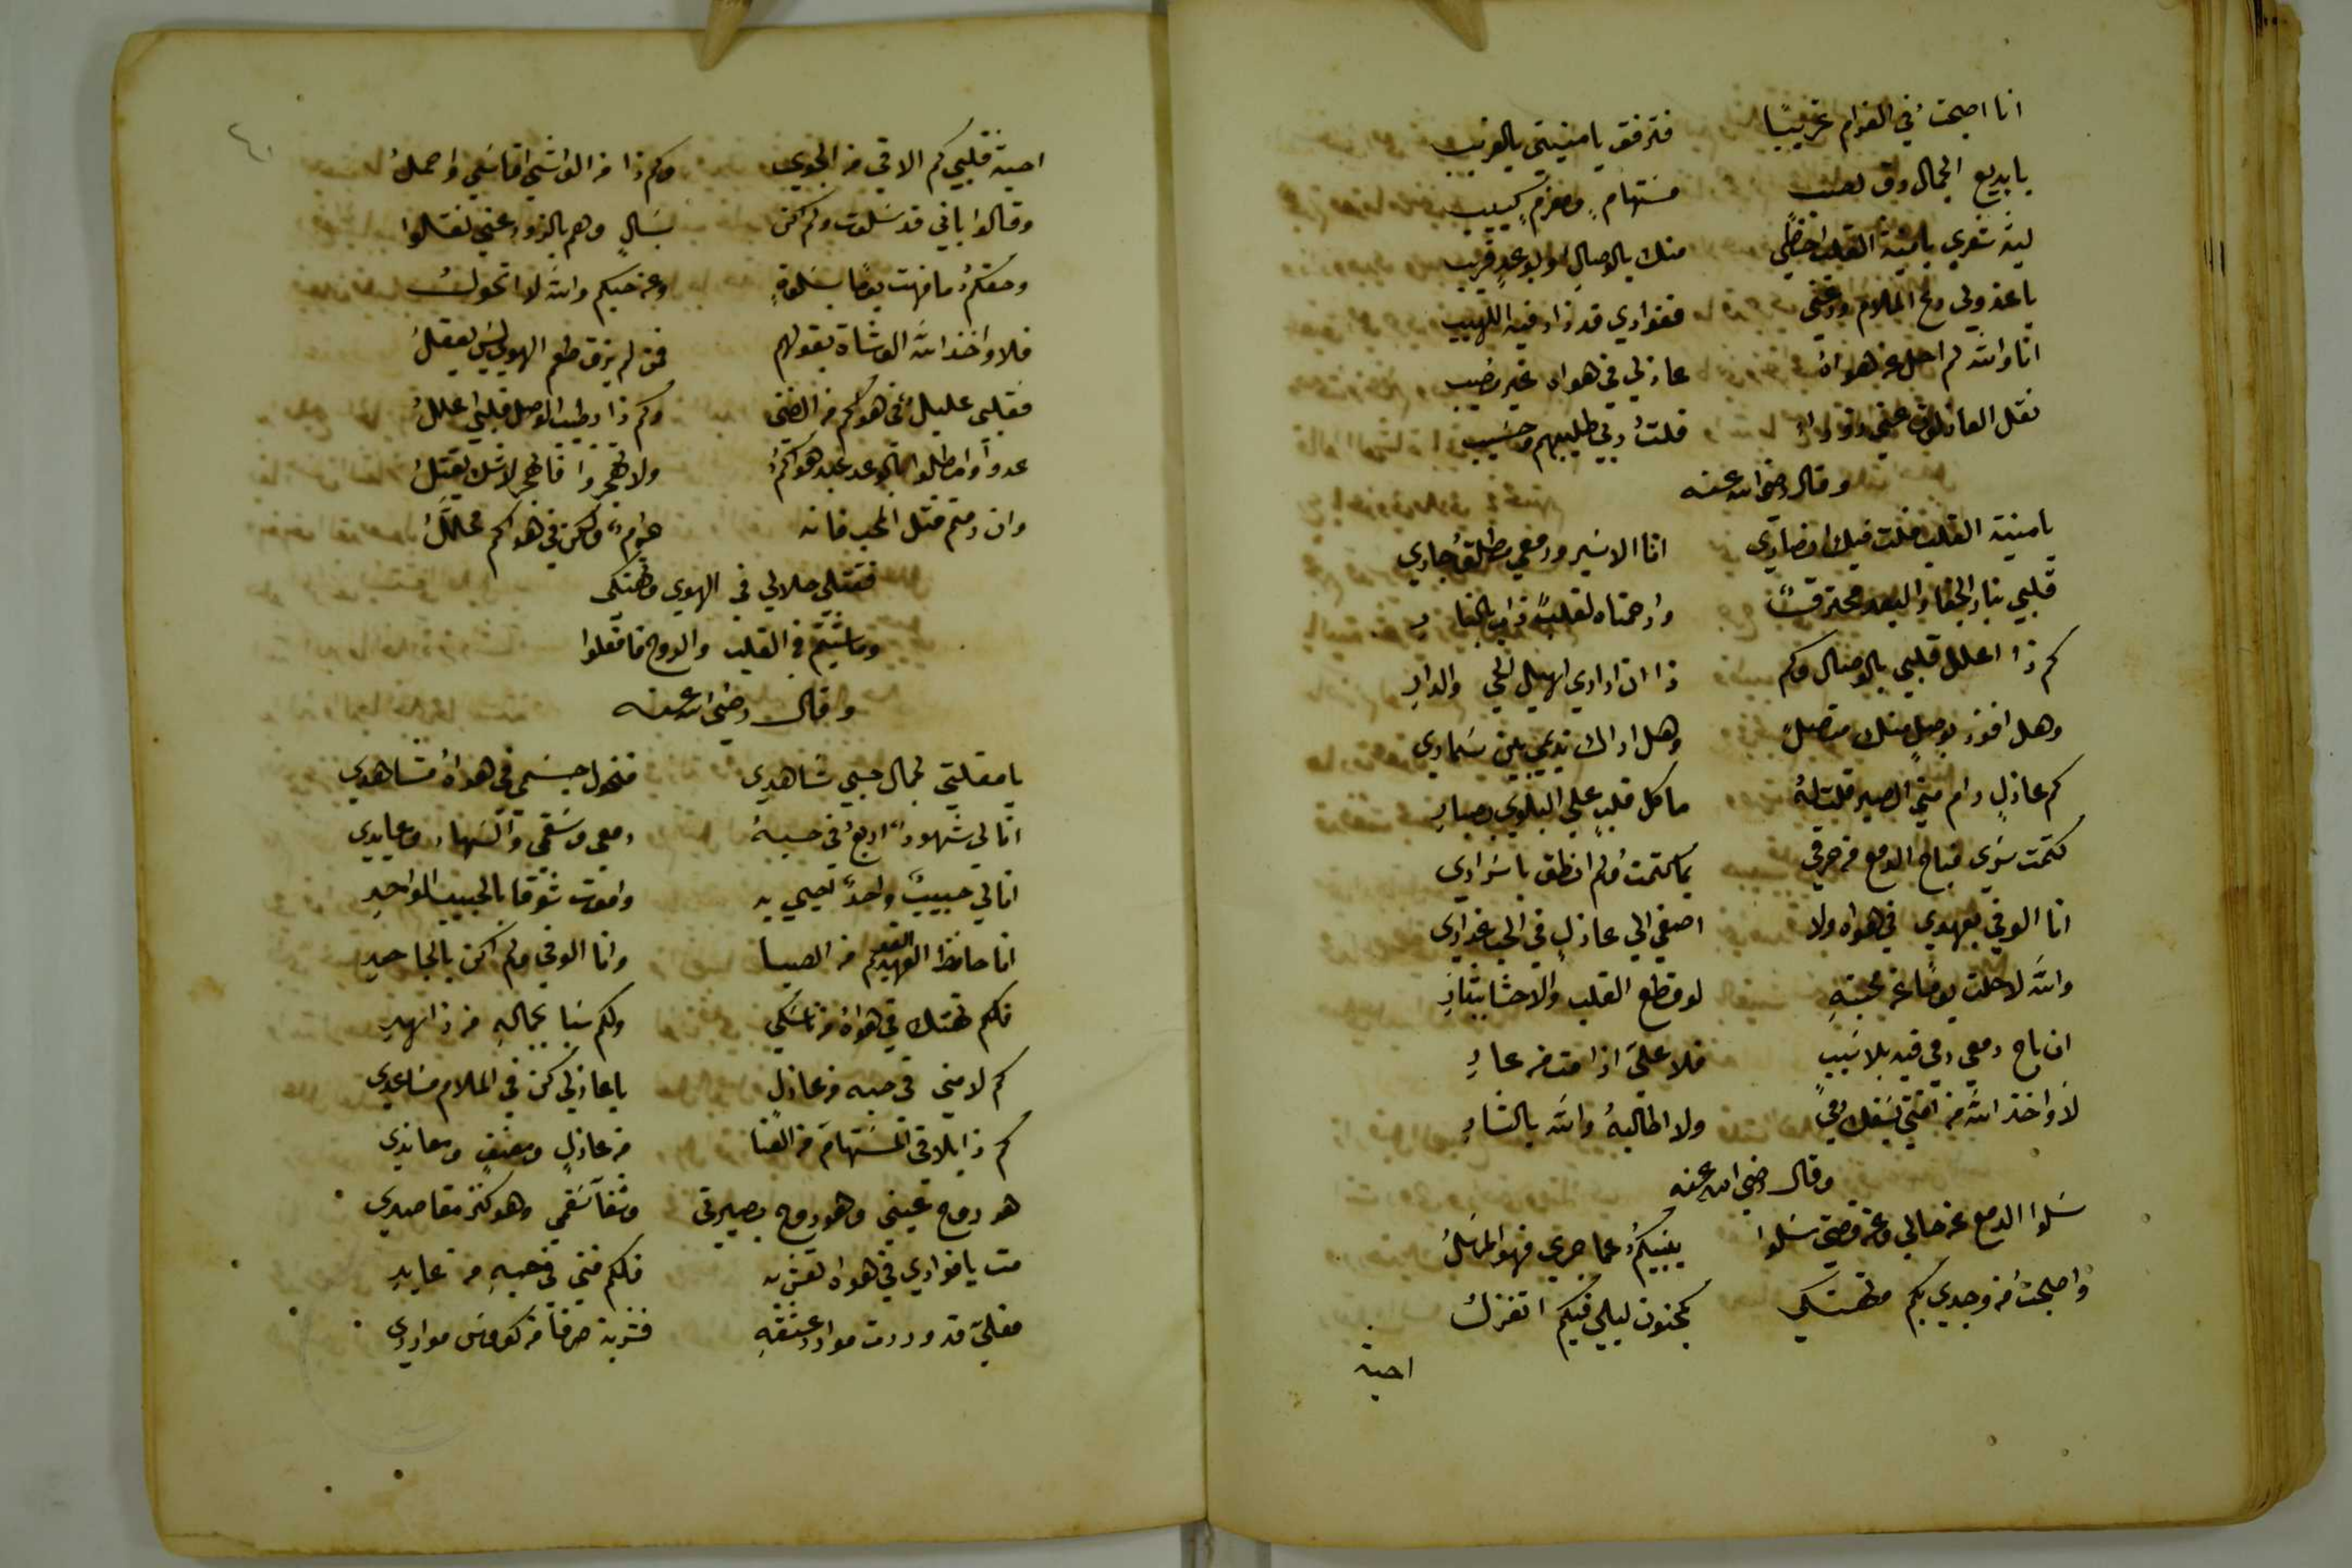 انا اصبحتُ في الغرام غريبًا فترفق يا منيتي بالغريب
يا بديع الجمال رق لصب مستهامٍ ومغرمٍ كييب
ليت شعري يا منية القلب احظي منك بالوصال او بوعدٍ قريب
يا عذولي دع الملام ودعني ففوادي قد زاد فيه اللهيب
انا والله لم احل عن هواهُ عاذلي في هواه غير مصيب
نقل العاذلون عني وزوراً قلتُ ربي طليبهم وحسيب
وقال رضي الله عنه
يا منية القلب قلت فيك انصاري انا الاسير ودمعي مطلقٌ جاري
قلبي بنار الجفا والبعد محترقٌ وارحمتاه لقلبٍ ذاب بالنار
كم ذا اعلل قلبي بالوصال وكم ذا ان اداري اهيل الحي والدارِ
وهل افوز بوصلٍ منك متصلٍ وهل اراك نديمي بين سماري
كم عاذلٍ رام مني الصبر قلت لهُ ما كل قلبٍ علي البلوي بصبارِ
كتمت سري فباح الدمع من حرقي بما كتمتُ ولم انطق باسراري
انا الوفي بعهدي في هواه ولا اصغي الي عاذلٍ في الحب غداري
والله لا حلت يومًا عن محبتهِ لو قطع القلب والاحشا بتبارِ
ان باح دمعي دمي فيه بلا سببٍ فلا عليَّ اذا مت من عارِ
لا واخذ الله من افتي بسفك دمي ولا اطالبهُ والله بالثارِ
وقال رضي الله عنه
سلوا الدمع عن حالي وعن قصتي سلوا ينبيكمُ عما جري فهو المرسلُ
واصبحتُ من وجدي بكم متهتكي كمجنون ليلي فيكم اتغزلُ
احبة
احبة قلبي كم الاقي من الجوي وكم ذا من الواشي اقاسي واحملُ
وقالوا باني قد سلوت ولم اكن بسالٍ وهم بالزور عني نقلوا
وحقكمُ ما فهت يومًا بسلوةٍ وعن حبكم والله لا اتحولُ
فلا واخذ الله الوشاة بقولهم فمن لم يذق طعم الهوي ليس يعقلُ
فقلبي عليلٌ في هواكم من الضني وكم ذا بطيب الوصل قلبي اعللُ
عدوا وامطلوا بالوعد عبد هواكمُ ولا تهجروا فالهجر لا شك يقتلُ
وان رمتم قتل المحب فانه حرامٌ ولكن في هواكم محلّلُ
فقتلي حلالي في الهوي وتهتكي
وما شيتم في القلب والروح فافعلوا
وقال رضي الله عنه
يا مقلتي لجمال حبي شاهدي فنحول جسمي في هواهُ مشاهدي
انا لي شهودٌ اربعٌ في حبهُ دمعي وسقمي والسهاد وعايدي
انا لي حبيبٌ واحدٌ نحيي به واموت شوقًا بالحبيب الواحدِ
انا حافظ العهد القديم من الصبا وانا الوفي ولم اكن بالجاحدِ
فلكم تهتك في هواهُ من ناسكي ولكم سبا بجمالهِ من زاهدِ
كم لامني في حبه من عاذلٍ يا عاذلي كن في الملام مساعدي
كم ذا يلاقي المستهام من العنا من عاذلٍ ومعنفٍ ومعاندي
هو روح عيني وهو روح بصيرتي وشفا سقمي وهو كنز مقاصدي
مت يا فوادي في هواه تعش به فلكم فني في حبهِ من عابدِ
فقلبي قد وردت موارد عشقهِ فشربة صرفًا من كووس مواردي